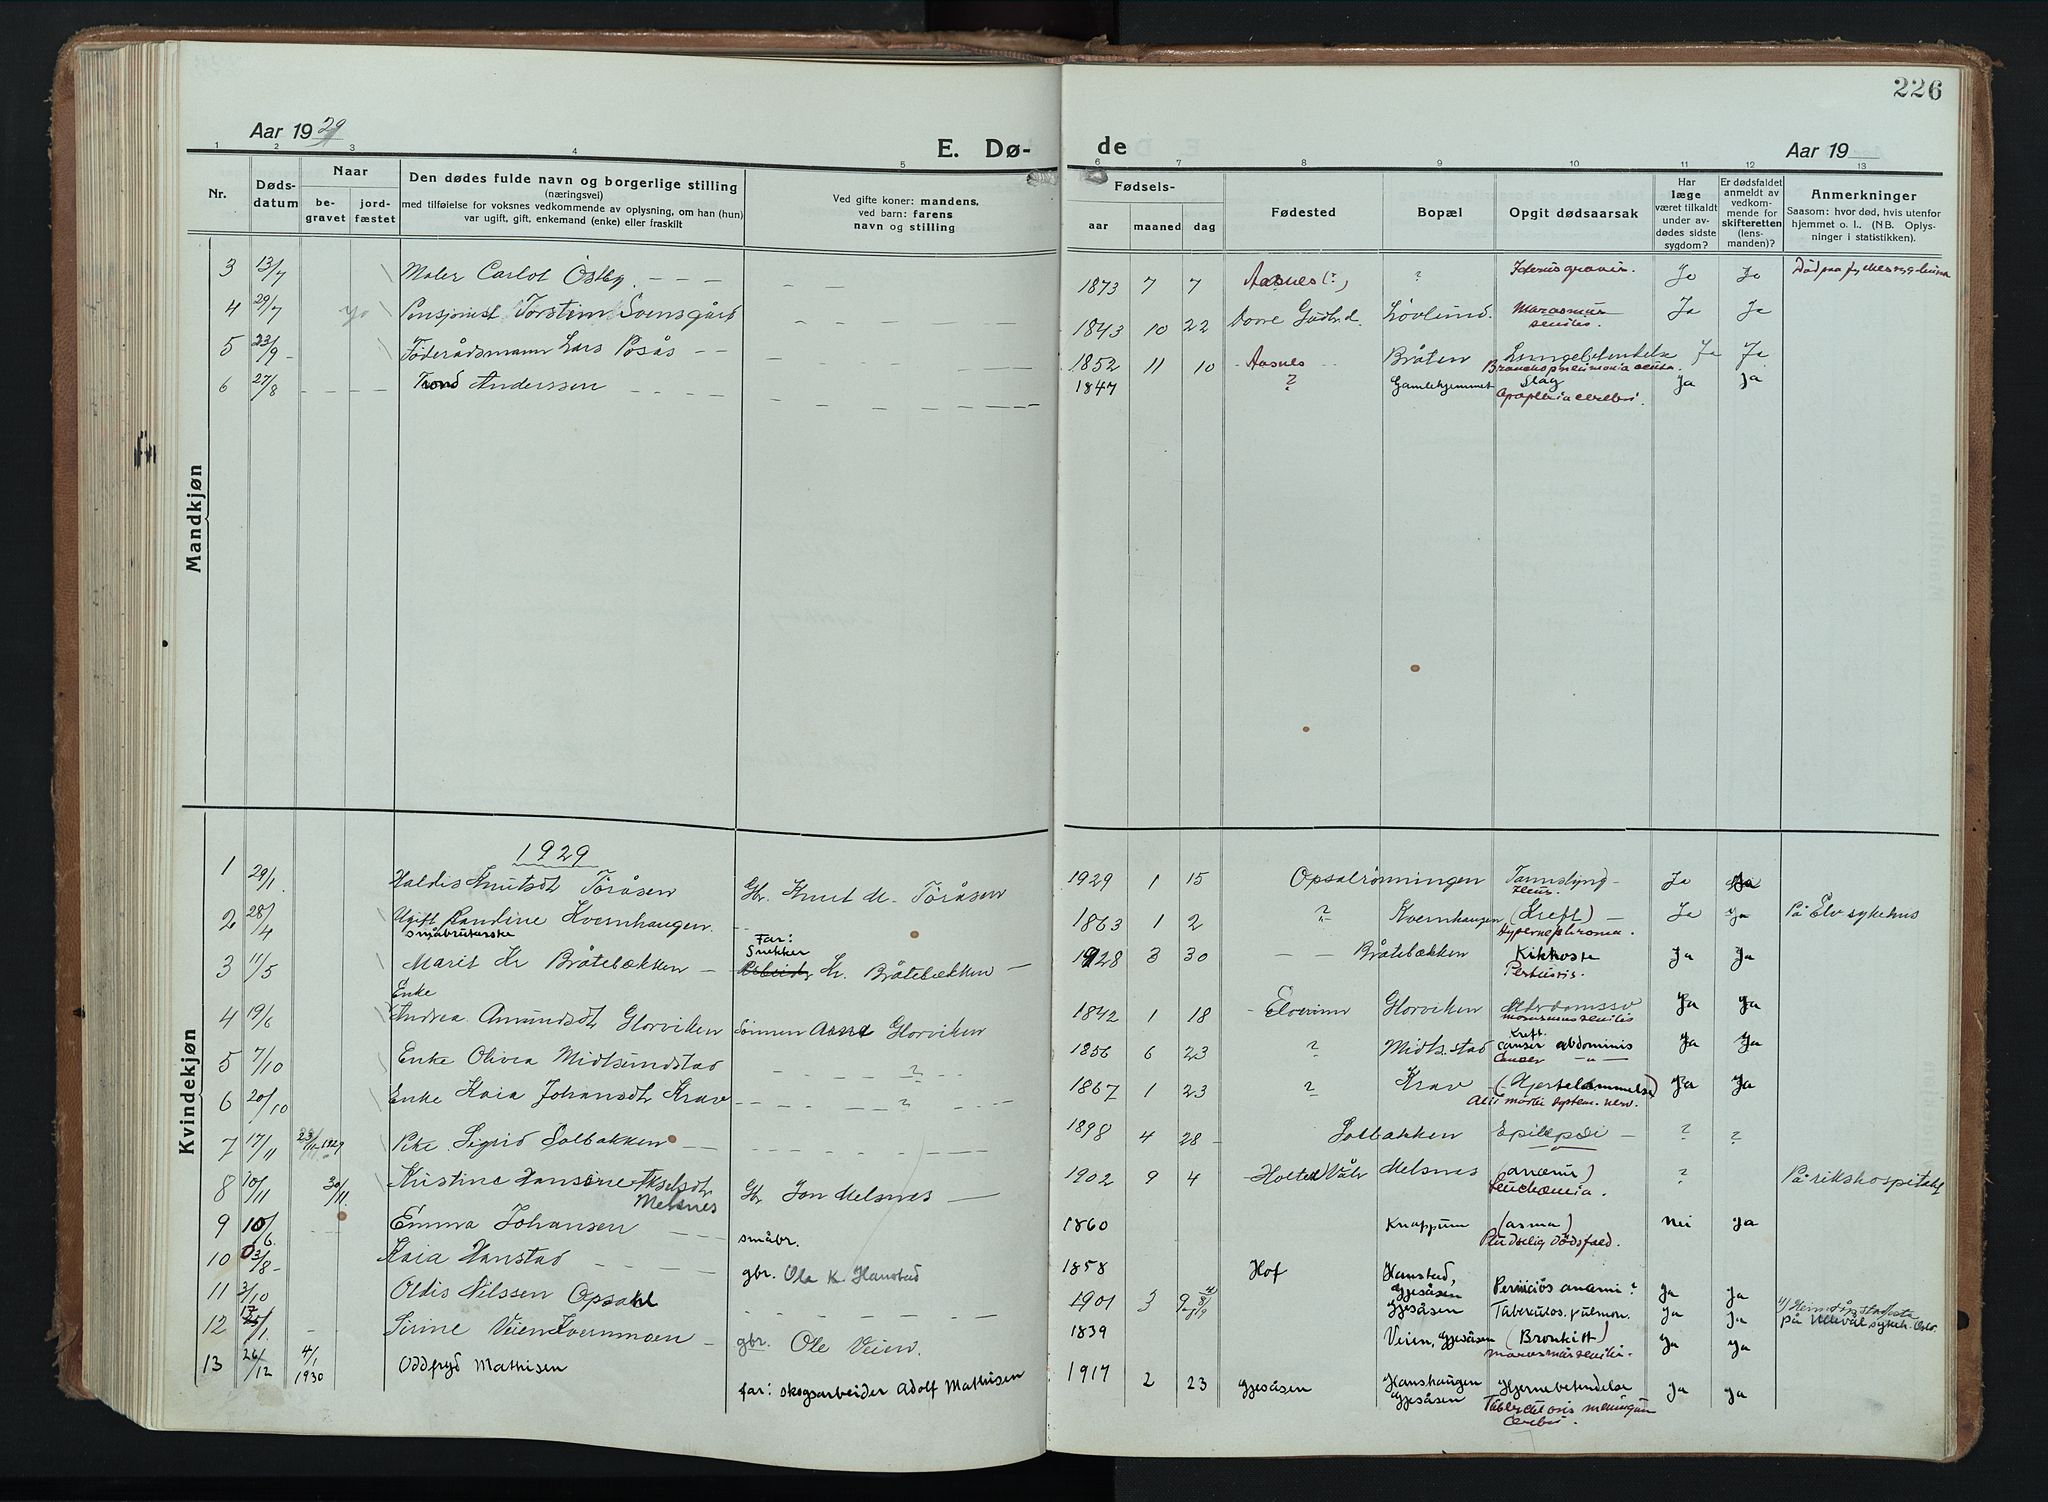 226
Aar 1929
E. Dø- de
Aar 19
1 2 3 4 5 6 7 8 9 10 11 12 13
Nr.
Døds-
datum
Naar
be-
gravet
jord-
fæstet
Den dødes fulde navn og borgerlige stilling
(næringsvei)
med tilføielse for voksnes vedkommende av oplysning, om han (hun)
var ugift, gift, enkemand (enke) eller fraskilt
Ved gifte koner: mandens,
ved barn: farens
navn og stilling
Fødsels-
aar maaned dag
Fødested
Bopæl
Opgit dødsaarsak
Har
læge
været tilkaldt
under av-
dødes sidste
sygdom?
Er dødsfaldet
anmeldt av
vedkom-
mende for
skifteretten
(lens-
manden)?
Anmerkninger
Saasom: hvor død, hvis utenfor
hjemmet o. l. (NB. Oplys-
ninger i statistikken).
Mandkjøn
3 13/7 Maler Carlot Østby - - - - - 1873 7 7 Aasnes (?) ? Icterus gravis. Ja Ja
4 29/7 Pensjonist Torstein Svensgård - - - 1843 10 22 Dovre Gudbr.d. Løvlund. Marasmus
senilis. Ja Ja
5 23/9 - Føderådsmann Lars Posås - - - 1852 11 10 - Aasnes - Bråten Lungebetendelse Ja Ja
Bronchopneumonia acuta.
6 27/8 - - - Trond Anderssen - - - 1847 ? Gamlehjemmet Slag Ja Ja
Apoplexia cerebri.
Kvindekjøn
1929
1 29/1 Haldis Knutsdt Toråsen Gbr. Knut M. Toråsen 1929 1 15 Opsalrønningen Ja
2 28/4 Ugift Randine Kvernhaugen. - - 1863 1 2 ? Kvernhaugen (Kreft) - Ja Ja På Elv. sykehus
småbrukerske Hypernephroma.
Far:
Snekker
3 11/5 Marit Kr Bråtebækken - Arbeider Kr. Bråtebækken - 1928 3 30 - - Bråtebækken Kikhoste Ja Ja
Pertusis.
Enke
4 19/6 Andrea Amundsdt Glorviken Sønnen Arne Glorviken 1842 1 18 - Elverum Glorviken Alderdomssv Ja Ja
marasmus senilis
5 7/10 Enke Olivea Midtsundstad - - - ? - - 1856 6 23 ? Midts.stad Kreft.
cancer abdominis Ja Ja
Cancer - " -
6 20/10 Enke Kaia Johansdt Krav - - - ? - - 1867 1 23 ? Krav (Hjertelammelse) Ja Ja
7 17/11 23/11 1929 Pike Sigrid Solbakken - - - - 1898 4 28 - Solbakken Epilepsi - ? ?
8 10/11 30/11 Kristine Hansine Akselsdt
Melsnes Gbr Jon Melsnes - 1902 9 4 Holter Våler Melsnes (anæmi) ? På rikshospitalet
Leuchæmia.
9 10/6 Emma Johansen småbr. 1860 Knappum (asma) Nei Ja
Pludselig dødsfald.
10 03/8 - Kaia Hanstad - - - gbr. Ola K. Hanstad 1858 Hof Hanstad,
Gjesåsen Perniciøs anæmi ? Ja Ja
11 3/10 Oldis Nilssen Opsahl - - - 1901 3 9 Gjesåsen Tuberculos. pulmon. Ja Ja
på Ullevål sykeh. Oslo.
12 - - Sirine Veien Kvernmoen - gbr. Ole Veien. 1839 Veien, Gjesåsen (Bronkitt) Ja Ja
marasmus senilis.
13 26/12 4/1
1930 Oddfryd Mathisen far: skogsarbeider Adolf Mathisen 1917 2 23 Gjesåsen Hanshaugen
Gjesåsen Hjernebetendelse Ja Ja
Cerebri.